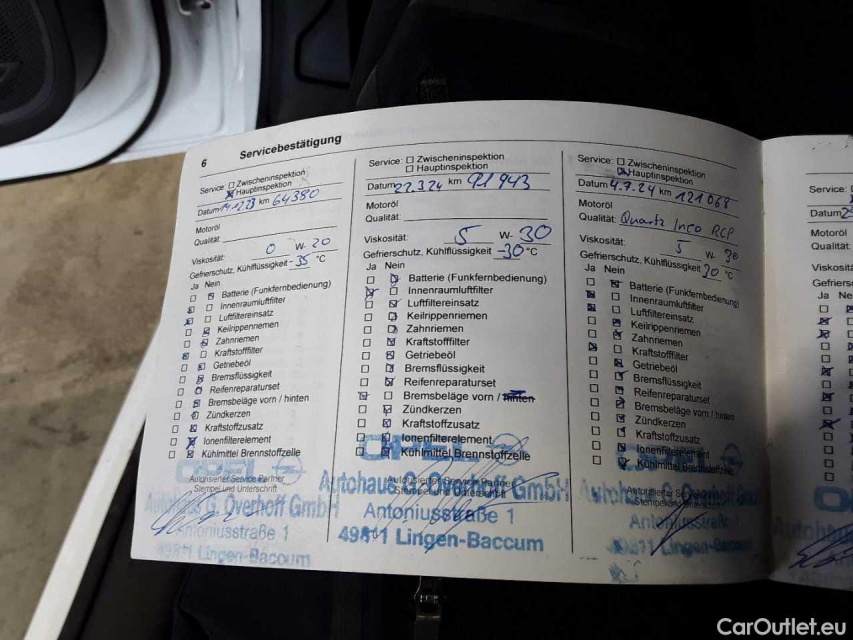 6 Servicebestätigung
Service: Zwischeninspektion
Hauptinspektion
Datum 14.12.23 km 64380
Motoröl
Qualität:
Viskosität: 0 W- 20
Gefrierschutz, Kühlflüssigkeit -35 °C
Ja Nein
Batterie (Funkfernbedienung)
Innenraumluftfilter
Luftfiltereinsatz
Keilrippenriemen
Zahnriemen
Kraftstofffilter
Getriebeöl
Bremsflüssigkeit
Reifenreparaturset
Bremsbeläge vorn / hinten
Zündkerzen
Kraftstoffzusatz
Ionenfilterelement
Kühlmittel Brennstoffzelle
OPEL
Autorisierter Service Partner
Stempel und Unterschrift
Autohaus G. Overhoff GmbH
Antoniusstraße 1
49811 Lingen-Baccum
Service: Zwischeninspektion
Hauptinspektion
Datum 22.3.24 km 91943
Motoröl
Qualität:
Viskosität: 5 W- 30
Gefrierschutz, Kühlflüssigkeit -30 °C
Ja Nein
Batterie (Funkfernbedienung)
Innenraumluftfilter
Luftfiltereinsatz
Keilrippenriemen
Zahnriemen
Kraftstofffilter
Getriebeöl
Bremsflüssigkeit
Reifenreparaturset
Bremsbeläge vorn / hinten
Zündkerzen
Kraftstoffzusatz
Ionenfilterelement
Kühlmittel Brennstoffzelle
OPEL
Autorisierter Service Partner
Autohaus G. Overhoff GmbH
Antoniusstraße 1
49811 Lingen-Baccum
Service: Zwischeninspektion
Hauptinspektion
Datum 4.7.24 km 121068
Motoröl
Qualität: Quartz Ineo RCP
Viskosität: 5 W- 30
Gefrierschutz, Kühlflüssigkeit 20 °C
Ja Nein
Batterie (Funkfernbedienung)
Innenraumluftfilter
Luftfiltereinsatz
Keilrippenriemen
Zahnriemen
Kraftstofffilter
Getriebeöl
Bremsflüssigkeit
Reifenreparaturset
Bremsbeläge vorn / hinten
Zündkerzen
Kraftstoffzusatz
Ionenfilterelement
Kühlmittel Brennstoffzelle
Autohaus G. Overhoff
Antoniusstraße
49811 Lingen-Baccum
Service:
Datum
Motoröl
Qualität:
Ja Nein
CarOutlet.eu